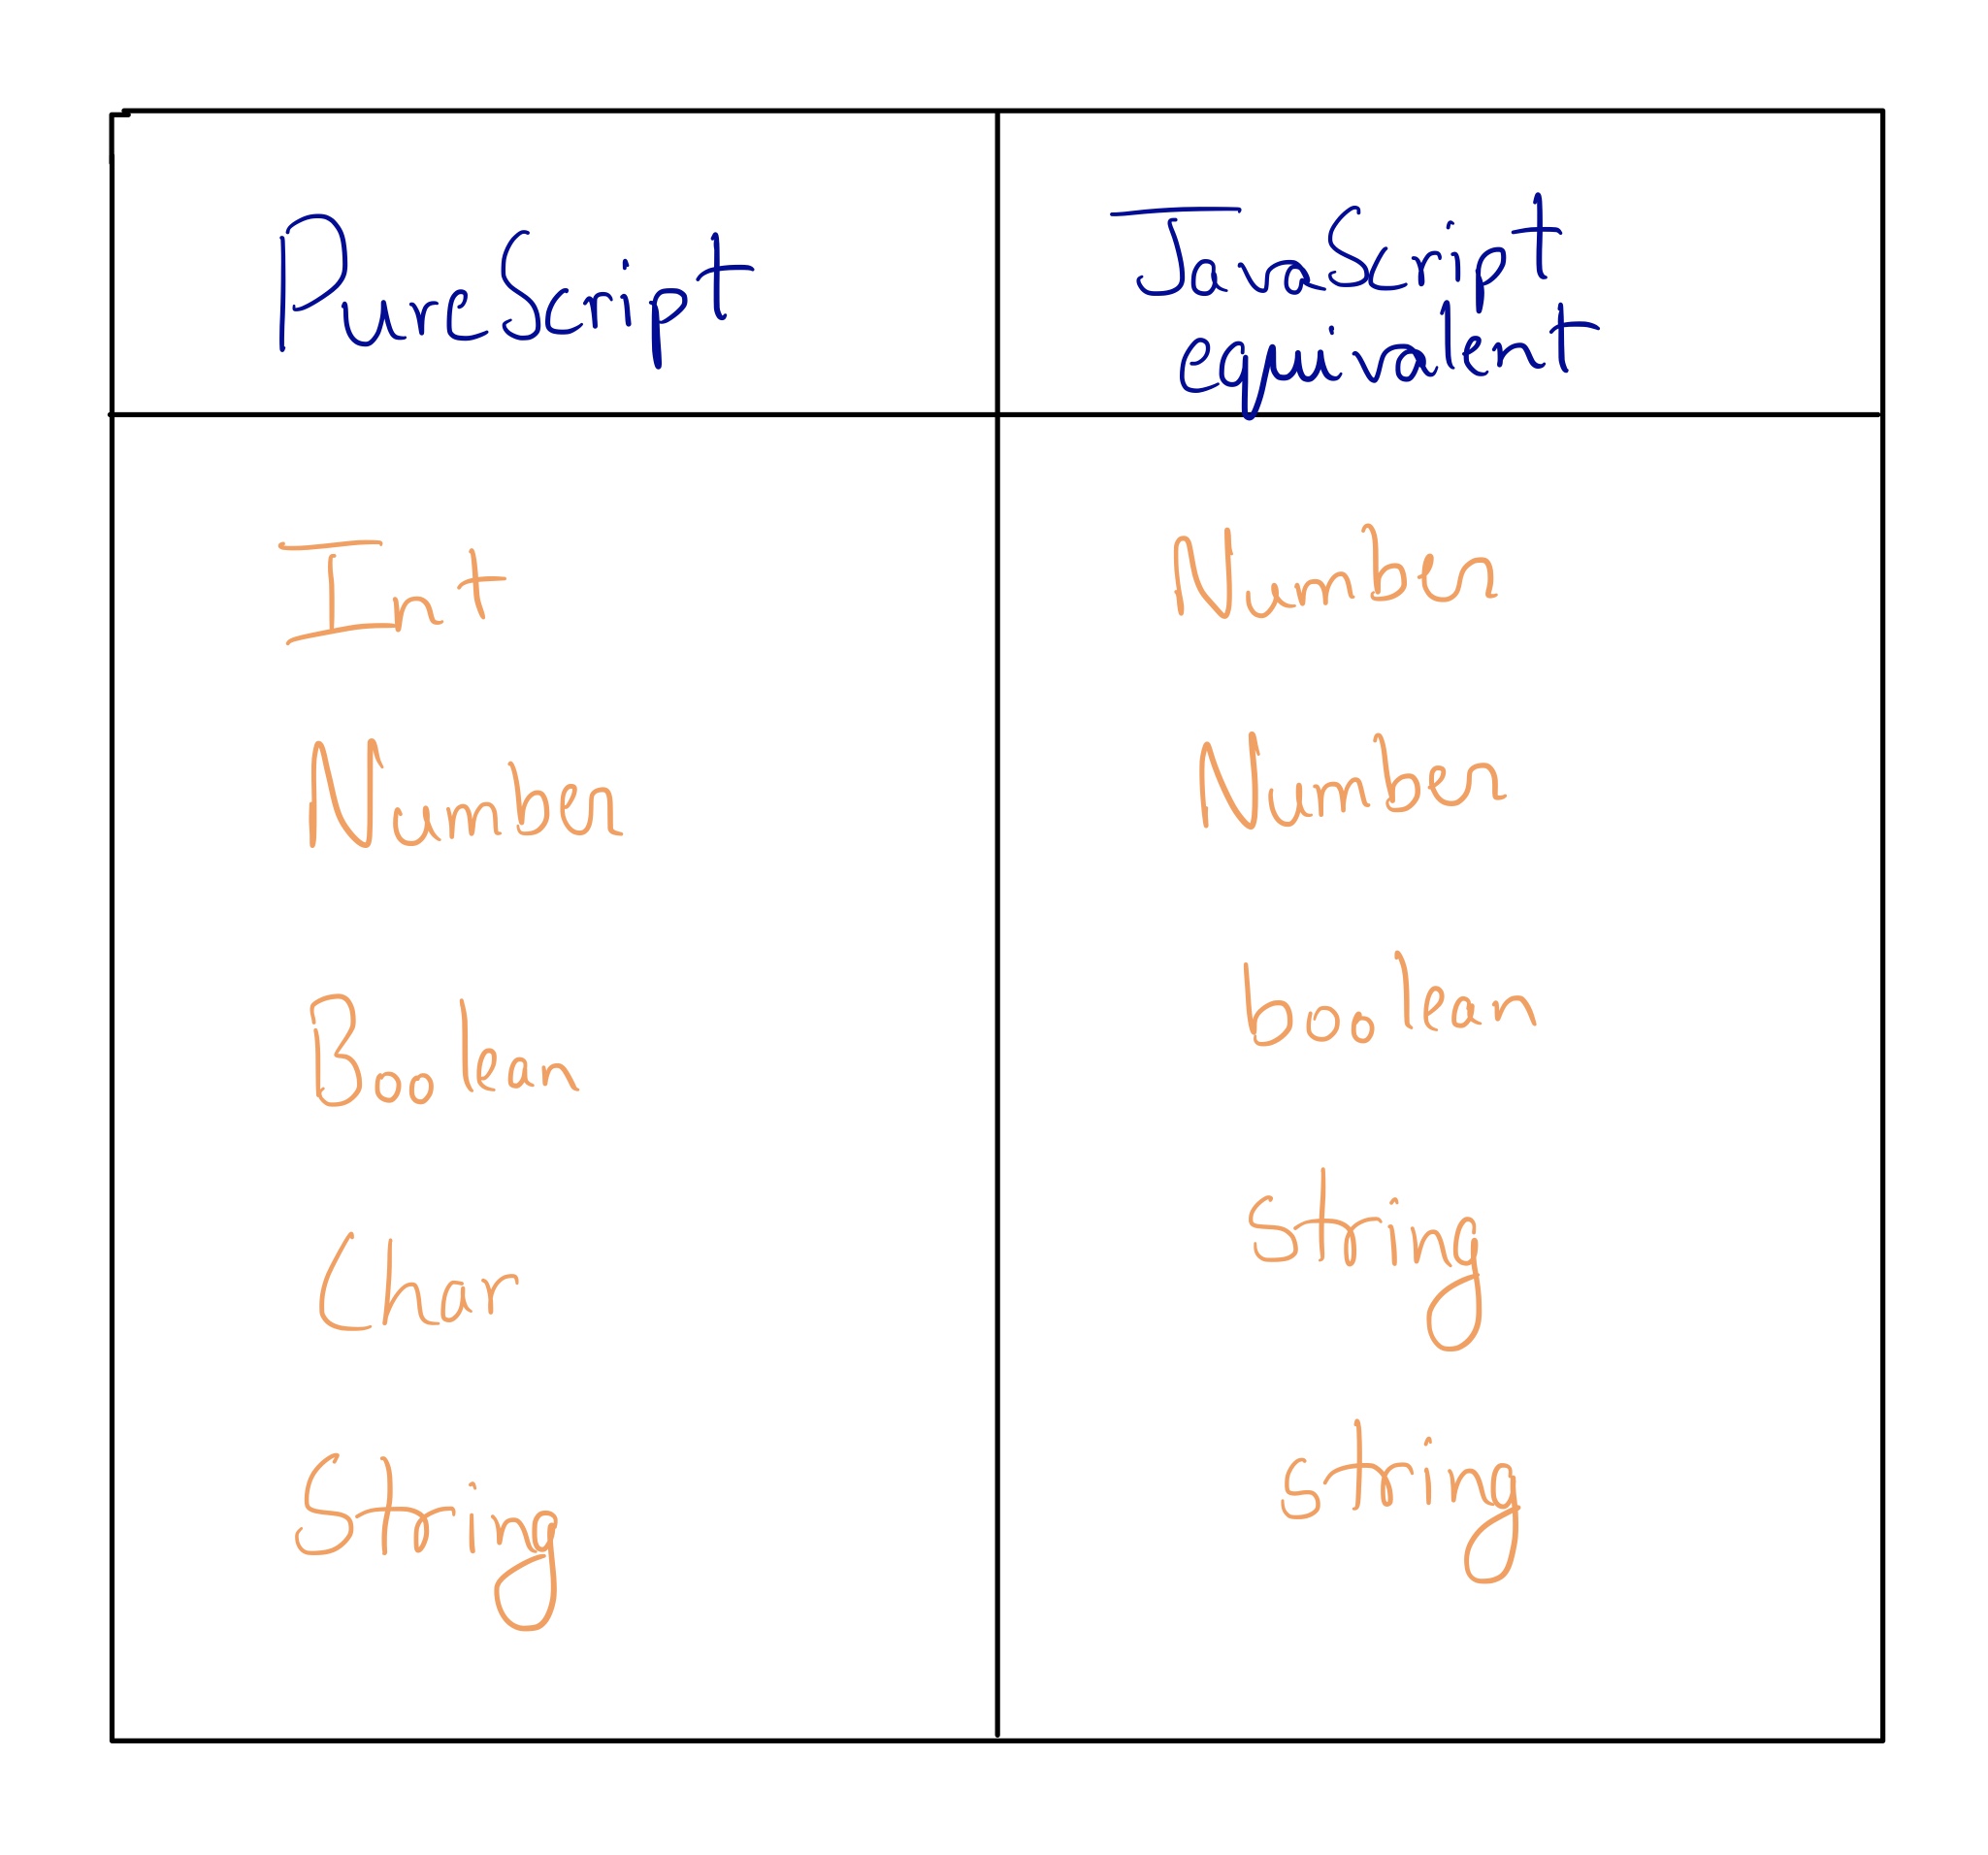 PureScript
JavaScript
equivalent
Int
Number
Number
Number
Boolean
boolean
Char
string
String
string